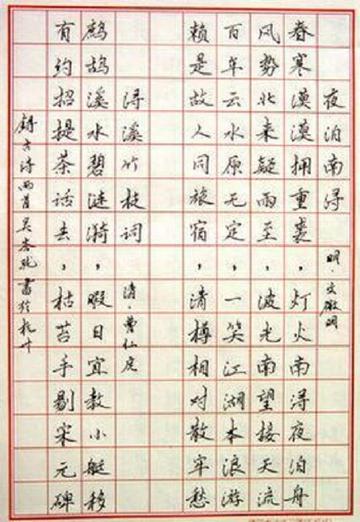 夜泊南浔 明·文徵明
春寒漠漠拥重裘,灯火南浔夜泊舟
风势北来疑雨至,波光南望接天流
百年云水原无定,一笑江湖本浪游
赖是故人同旅宿,清樽相对散牢愁
浔溪竹枝词 清·曹
鹧鸪溪水碧涟漪,暇日宜教小艇移
有约招提茶话去,枯苔手剔宋元碑
录古诗两首 吴书於杭州